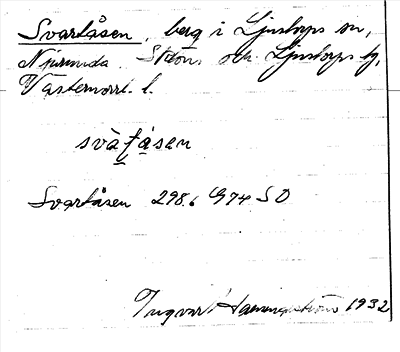 Svartåsen, berg i Ljustorps sn,
Njurunda, Skön och Ljustorps tg,
Västernorrl. l.
svàṭåsen
Svartåsen 298.6 G74 SO
Ingvar Hammarström 1932